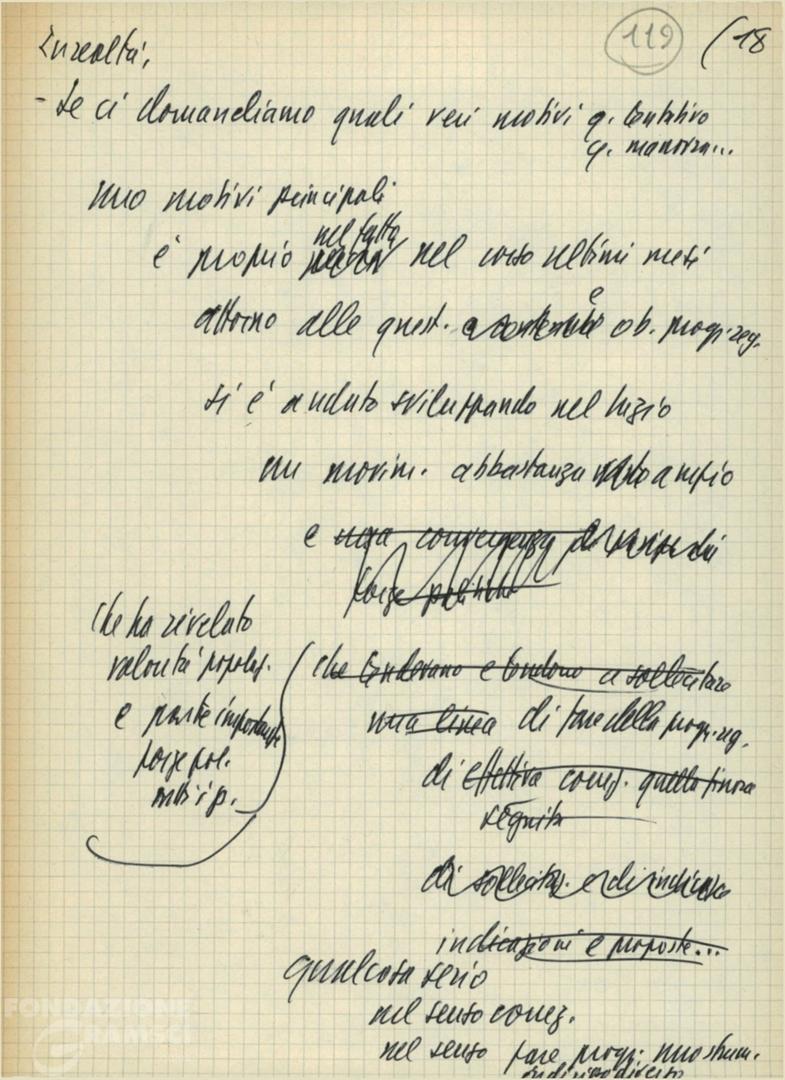 119 (18
In realtà,
- Se ci domandiamo quali veri motivi q. tentativo
q. manovra...
uno motivi principali
nel fatto
è proprio nel corso ultimi mesi
attorno alle quest. e ob. progr. reg.
si è andato sviluppando nel Lazio
un movim. abbastanza ampio
e una convergenza di
forze politiche
che ha rivelato
volontà popolaz.
e parte importante
forze pol.
che tendevano e tendono a sollecitare
una linea di fare della progr. reg.
di effettiva quella finora
seguita
di sollecitaz. e di indicare
indicazioni e proposte...
qualcosa serio
nel senso
nel senso fare progr. uno strum.
indirizzo diverso
FONDAZIONE